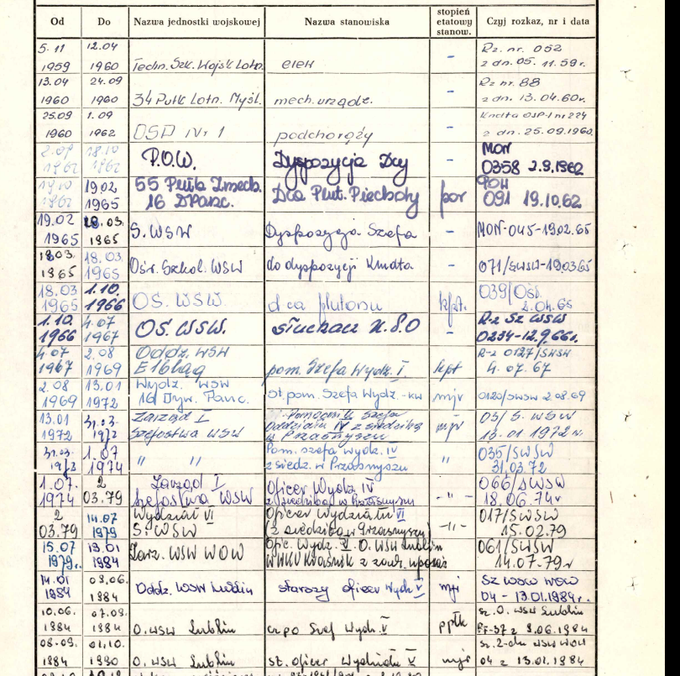 Od Do Nazwa jednostki wojskowej Nazwa stanowiska stopień etatowy stanow. Czyj rozkaz, nr i data
5.11 1959 12.04 1960 Techn. Szk. Wojsk Lotn. elew - Rz. nr. 062 z dn. 05.11.59r.
13.04 1960 24.09 1960 34 Pułk Lotn. Myśl. mech. urządz. - Rz nr. 88 z dn. 13.04.60r.
25.09 1960 1.09 1962 OSP Nr 1 podchorąży - z dn. 25.09.1960
2.09 1962 18.10 1962 P.O.W. Dyspozycja Dcy - MON 0358 2.9.1962
19.10 1962 19.02 1965 55 Pułk Zmech. 16 DPanc. Dca Plut. Piechoty por POW 091 19.10.62
19.02 1965 18.03. 1965 S. WSW Dyspozycja Szefa - MON-045-19.02.65
18.03. 1965 18.03. 1965 Ośr. Szkol. WSW do dyspozycji Kmdta - 071/SWSW-19.03.65
18.03 1965 1.10. 1966 OS. WSW dca plutonu kpt. 039/Ośr. 2.04.65
1.10. 1966 4.07 1967 OS. WSW. słuchacz K.S.O - Rz Sz WSW 0234-12.9.66r.
4.07 1967 2.08 1969 Oddz. WSW Elbląg pom. Szefa Wydz. I kpt Rz 0127/SWSW 4.07.67
2.08 1969 13.01 1972 Wydz. WSW 16 Dyw. Panc. st. pom. Szefa Wydz.-kw mjr 0120/SWSW 2.08.69
13.01 1972 31.03. 1972 Zarząd I Szefostwa WSW Pomocnik Szefa Oddziału IV z siedzibą w Przasnyszu mjr 03/S.WSW 13.01 1972 r.
31.03. 1972 1.07 1974 " " Pom. szefa Wydz. IV z siedz. w Przasnyszu " 035/SWSW 31.03.72
1.07. 1974 2 03.79 Zarząd I Szefostwa WSW Oficer Wydz. IV z siedzibą w Przasnyszu -"- 066/SWSW 18.06.74r
2 03.79 14.07 1979 Wydział VI S. WSW Oficer Wydziału VI (z siedzibą w Przasnyszu) -"- 017/SWSW 15.02.79
15.07 1979r. 13.01 1984 Zarz. WSW WOW Ofic. Wydz. V O. WSW Lublin 061/SWSW 14.07.79r
14.01 1984 09.06. 1984 Oddz. WSW Lublin starszy oficer Wydz V mjr Sz WSW WOW 04-13.01.1984r.
10.06. 1984 07.09. 1984 O. WSW Lublin cz.po Szef Wydz. V ppłk sz. O. WSW Lublin Pf-37 z 9.06.1984
08.09. 1984 01.10. 1990 O. WSW Lublin st. oficer Wydziału V mjr WSW WOW 04 z 13.01.1984